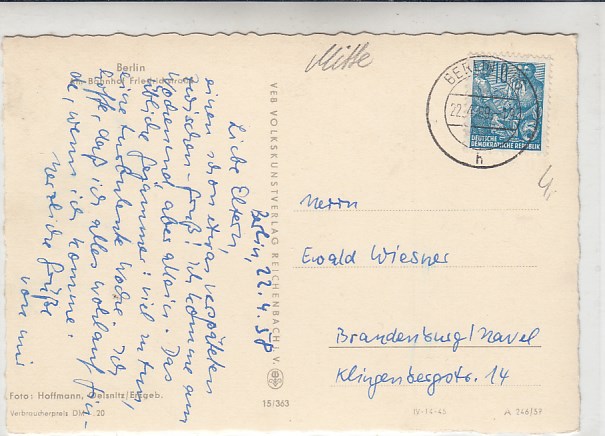 Berlin
Am Bahnhof Friedrichstraße
Mitte
BERLIN
22.4.58
h
10
DEUTSCHE
DEMOKRATISCHE REPUBLIK
VEB VOLKSKUNSTVERLAG REICHENBACH I. V.
Berlin, 22.4.58
Liebe Eltern,
einen schon etwas verspäteten
Zwischen-Gruß! Ich komme zum
Wochenend, aber allein. Das
übliche Gejammer: viel zu tun,
eine turbulente Woche. Ich
hoffe, daß ich alles wohlauf fin-
de, wenn ich komme.
Herzliche Grüße
von mir
Herrn
Ewald Wiesner
Brandenburg/Havel
Klingenbergstr. 14
Foto: Hoffmann, Oelsnitz/Erzgeb.
Verbraucherpreis DM -.20
15/363
IV-14-45
A 246/57